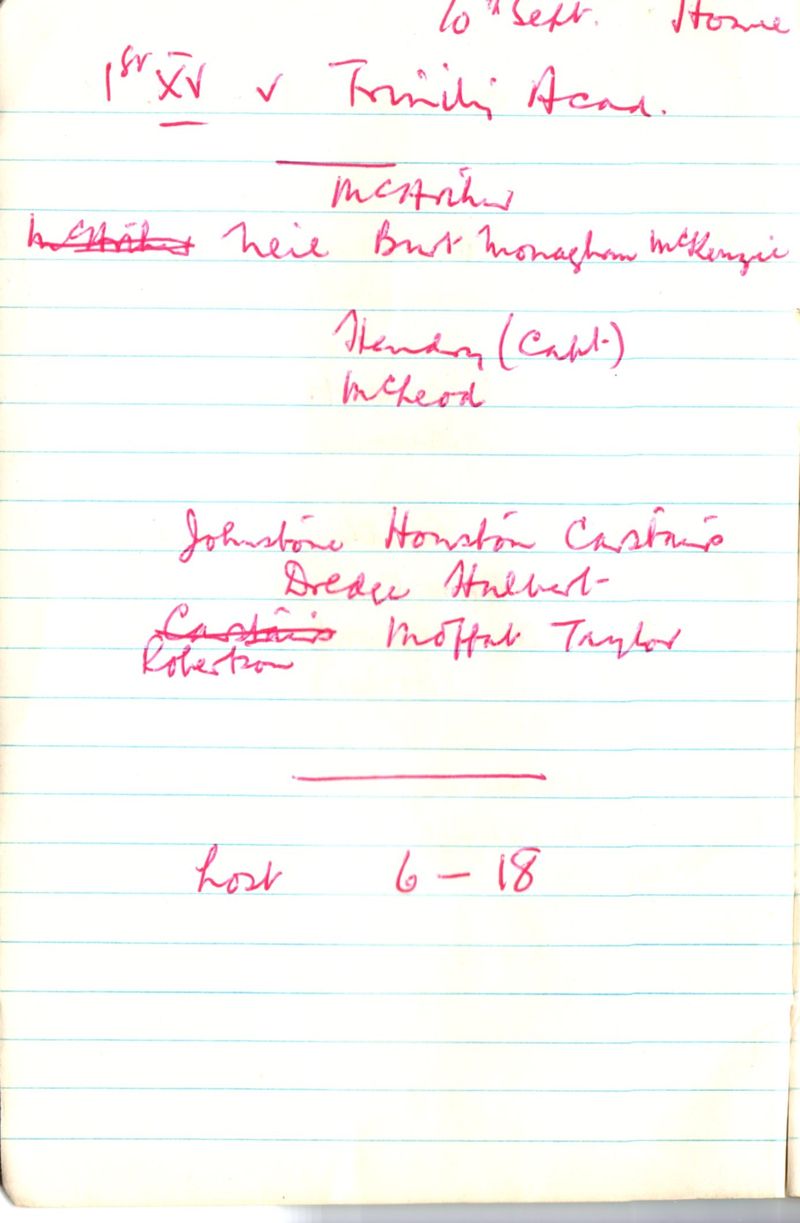 10th Sept. Home
1st XV v Trinity Acad.
McArthur
McArthur Neil Burt Monaghan McKenzie
Hendry (Capt)
McLeod
Johnstone Houston Carstairs
Dredge Hulbert
Carstairs Moffat Taylor
Robertson
Lost 6 - 18